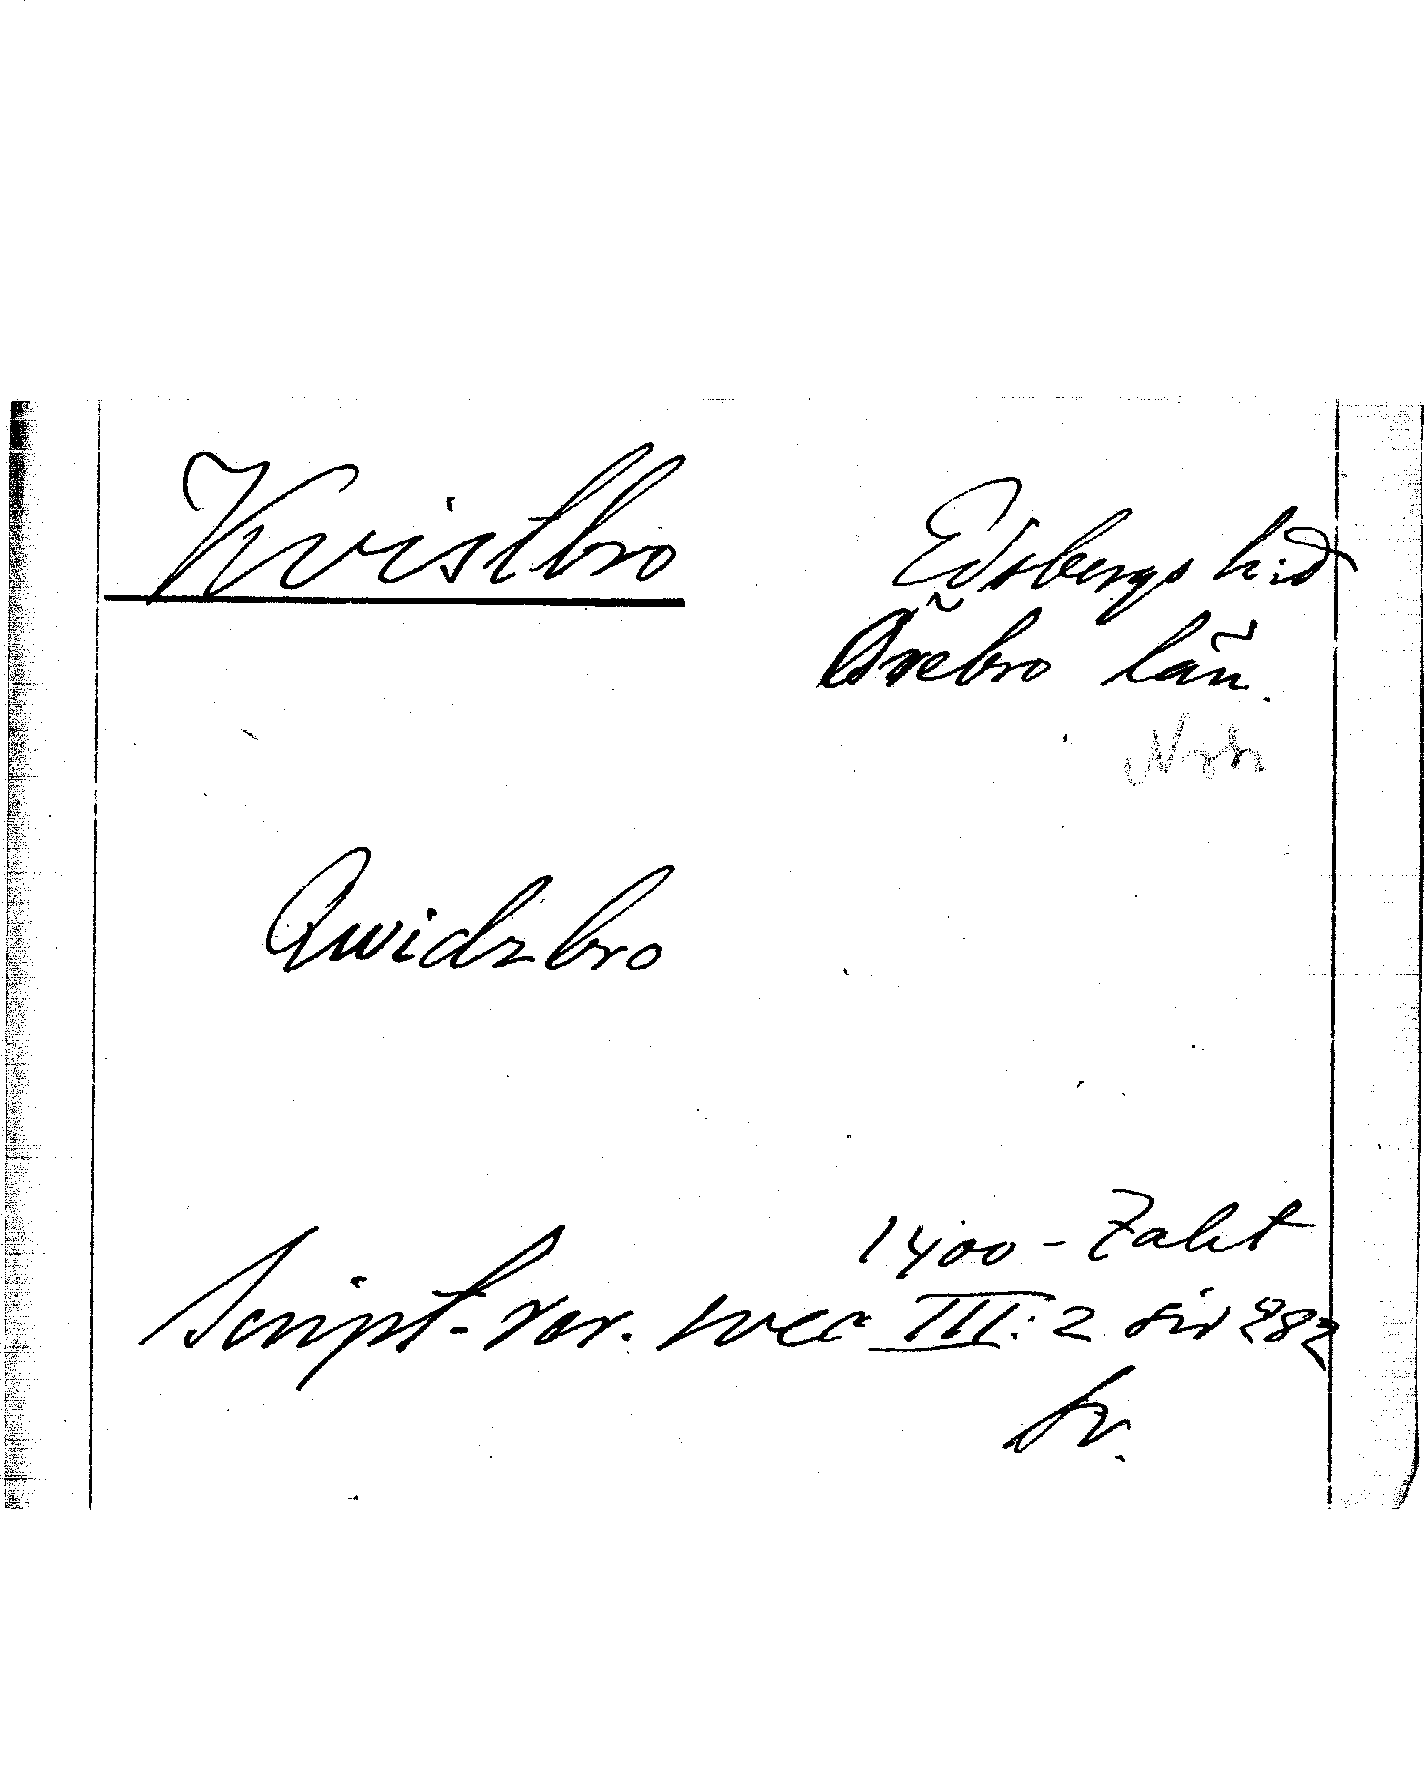 Kvistbro
Edsbergs h:d
Örebro län.
Qwidzbro
1400-talet
Script. rer. svec III:2 sid 282